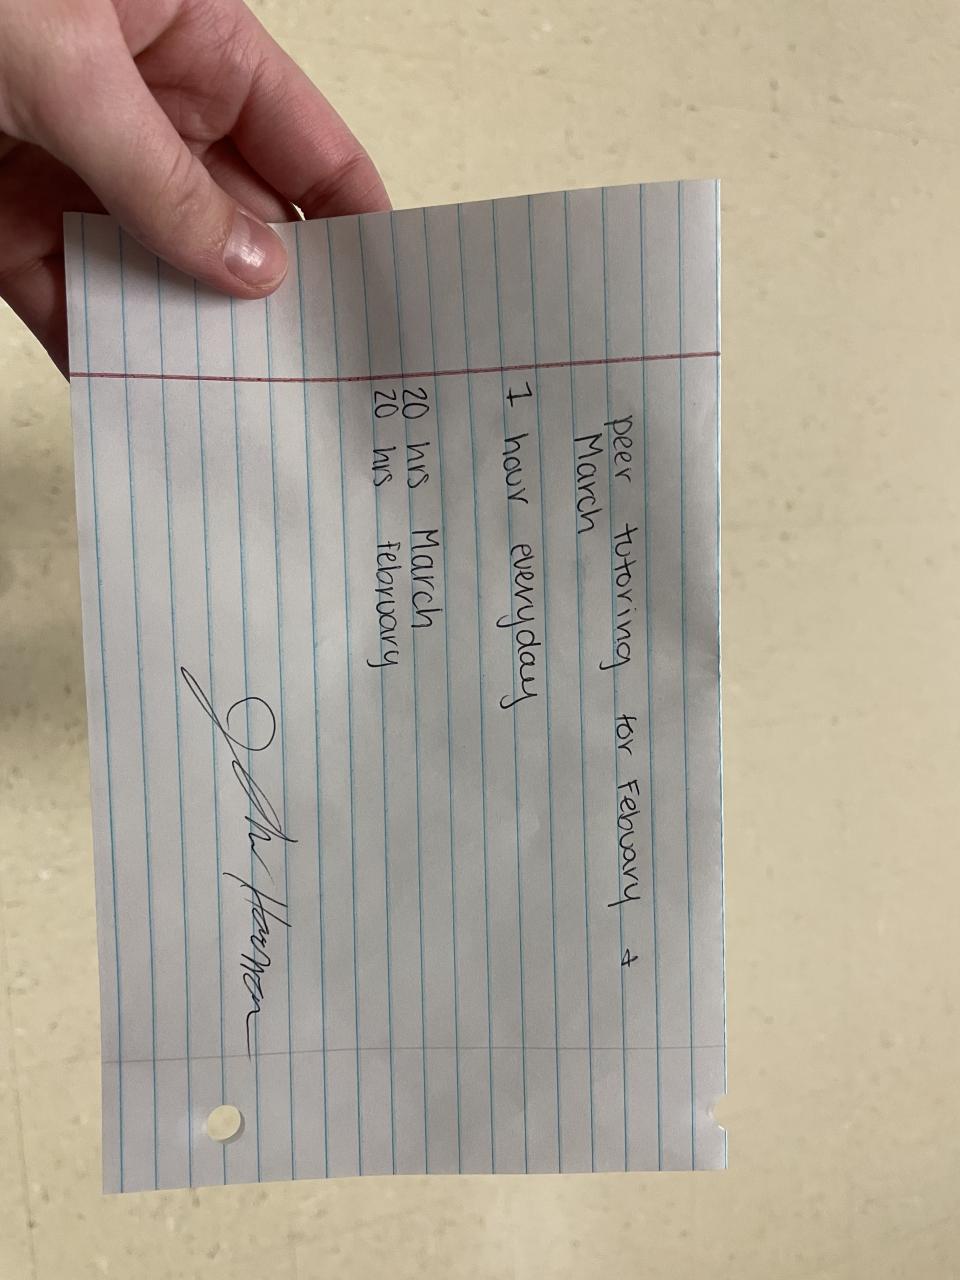 peer tutoring for Febuary +
March
1 hour everyday
20 hrs March
20 hrs february